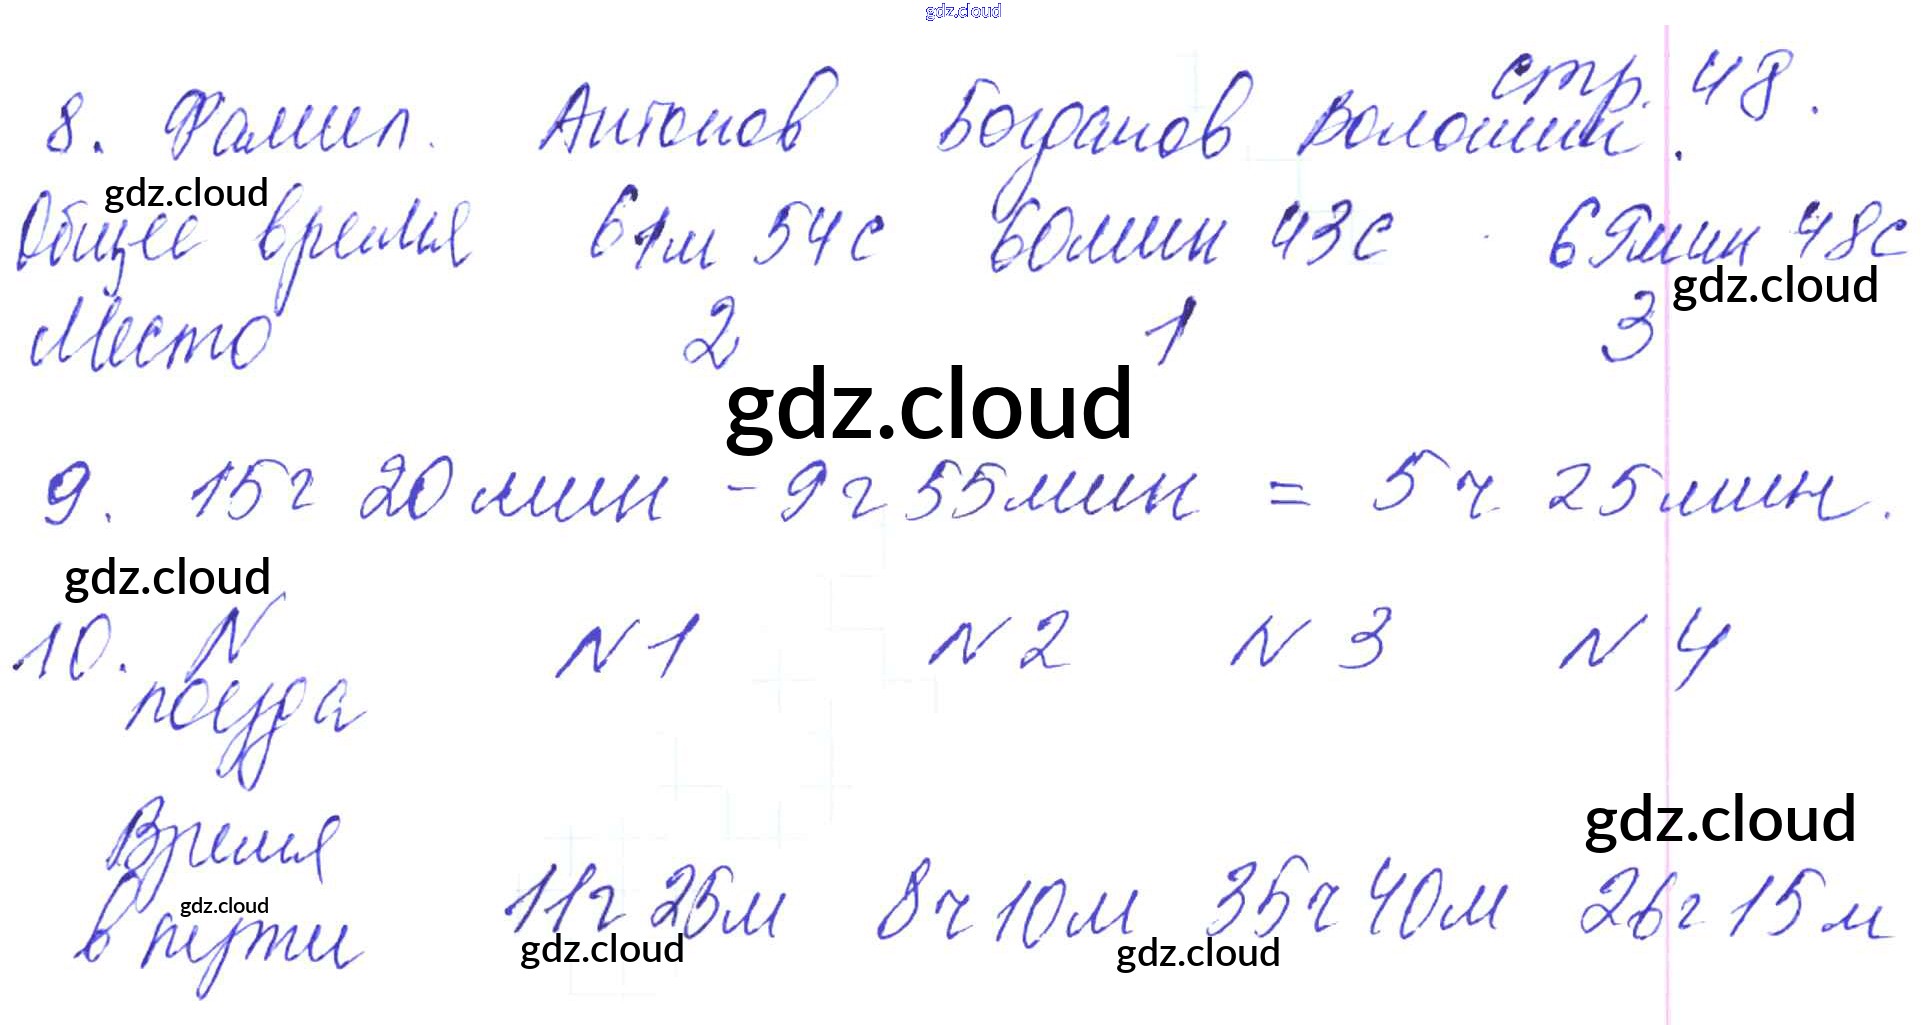 gdz.cloud
стр. 48.
8. Фамил. Антонов Богданов Волошин.
gdz.cloud
Общее время 61м 54с 60мин 43с 69мин 48с
gdz.cloud
Место 2 1 3
gdz.cloud
9. 15ч 20мин - 9ч 55мин = 5ч 25мин.
gdz.cloud
10. N N1 N2 N3 N4
поезда
gdz.cloud
Время
в пути 11ч 25м 8ч 10м 35ч 40м 26ч 15м
gdz.cloud
gdz.cloud
gdz.cloud